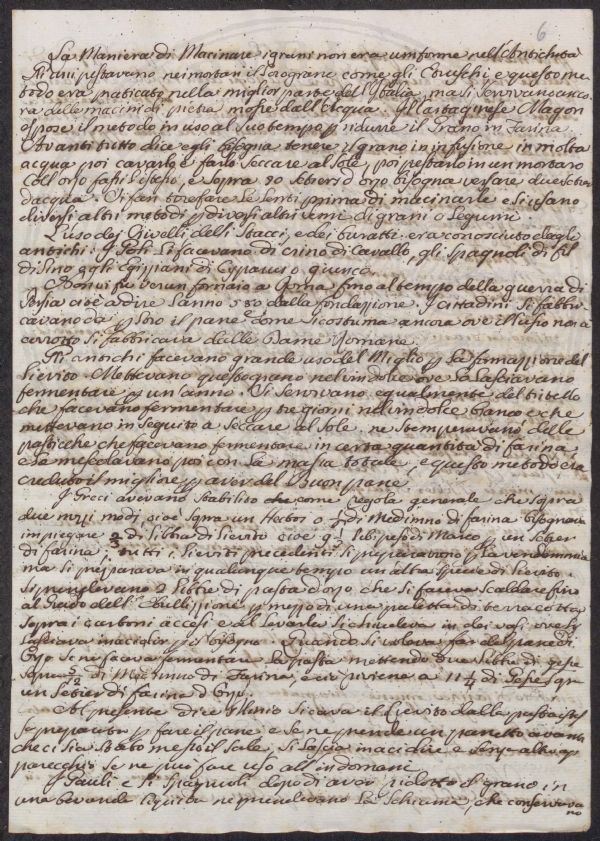 6
La Maniera di Macinare i grani non era uniforme nell'Antichità
Gli uni pestavano nei mortari il loro grano come gli Etruschi e questo me
todo era praticato nella miglior parte dell'Italia, ma si servivano anco
ra delle macini di pietra mosse dall'Acqua. Il Cartaginese Magon
espose il metodo in uso al suo tempo p ridurre il Grano in Farina.
Avanti tutto dice egli bisogna tenere il grano in infusione in molta
acqua poi cavarlo e farlo seccare al Sole, poi pestarlo in un mortaro
Coll'orzo fassi l'istesso, e sopra 20 setiers d'orzo bisogna versare due setier
d'acqua. Si fan torefare le lenti prima di macinarle e si usano
diversi altri metodi p diversi altri semi di grani o legumi.
L'uso dei Crivelli delli Stacci, e dei buratti era conosciuto dagli
antichi. I Galli li facevano di crino di Cavallo, gli Spagnoli di fil
di lino e gli Egizziani di Cyparus o giunco.
Non vi fù verun fornaio a Roma fino al tempo della guerra di
Persia cioè a dire l'anno 580 dalla fondazione. I Cittadini si fabbri
cavano da p loro il pane come si costuma ancora ove il lusso non a
corrotto si fabbricava dalle Dame Romane.
Gli antichi facevano grande uso del Miglio p la formazione del
lievito. Mettevano questo grano nel vin dolce ove lo lasciavano
fermentare p un'anno. Si servivano egualmente del tritello
che facevano fermentare p tre giorni nel vin dolce bianco e che
mettevano in seguito a seccare al sole. ne stemperavano delle
pasticche che facevano fermentare in certa quantità di farina
e la mescolavano poi con la massa totale, e questo metodo era
creduto il migliore p aver del Buon pane
I Greci avevano stabilito come regola generale che sopra
due mezzi modi cioè sopra un di Medimno di farina bisognava
impiegare 2/3 di libbra di lievito cioè peso di Marco p un Setier
di farina, tutti i lieviti precedenti si preparavano p la vendemmia
ma si preparava in qualunque tempo un'altra specie di lievito.
Si prendevano 2 libbre di pasta d'orzo che si faceva scaldare fino
al grado dell'Ebullizione p mezzo di una paletta di terra cotta
sopra i carboni accesi e al levarla si chiudeva in dei vasi ove si
lasciava inacidir p il bisogno. Quando si voleva far del pane di
Orzo se ne faceva fermentare la pasta mettendo due libbre di
sopra 5/12 di Medimno di Farina, e ciò riviene a 11 1/4 di sopra
un Setier di farina d'Orzo.
Al presente dice Plinio si cava il Lievito dalla pasta istessa
preparata p fare il pane e se ne prende un panetto avanti
che ci sia stato messo il sale, si lascia inacidire e senz'altro ap
parecchio se ne può fare uso all'indomane.
I Galli e li Spagnuoli dopo di aver ridotto il grano in
una bevanda liquida ne prendevano la schiuma, che conservava
no